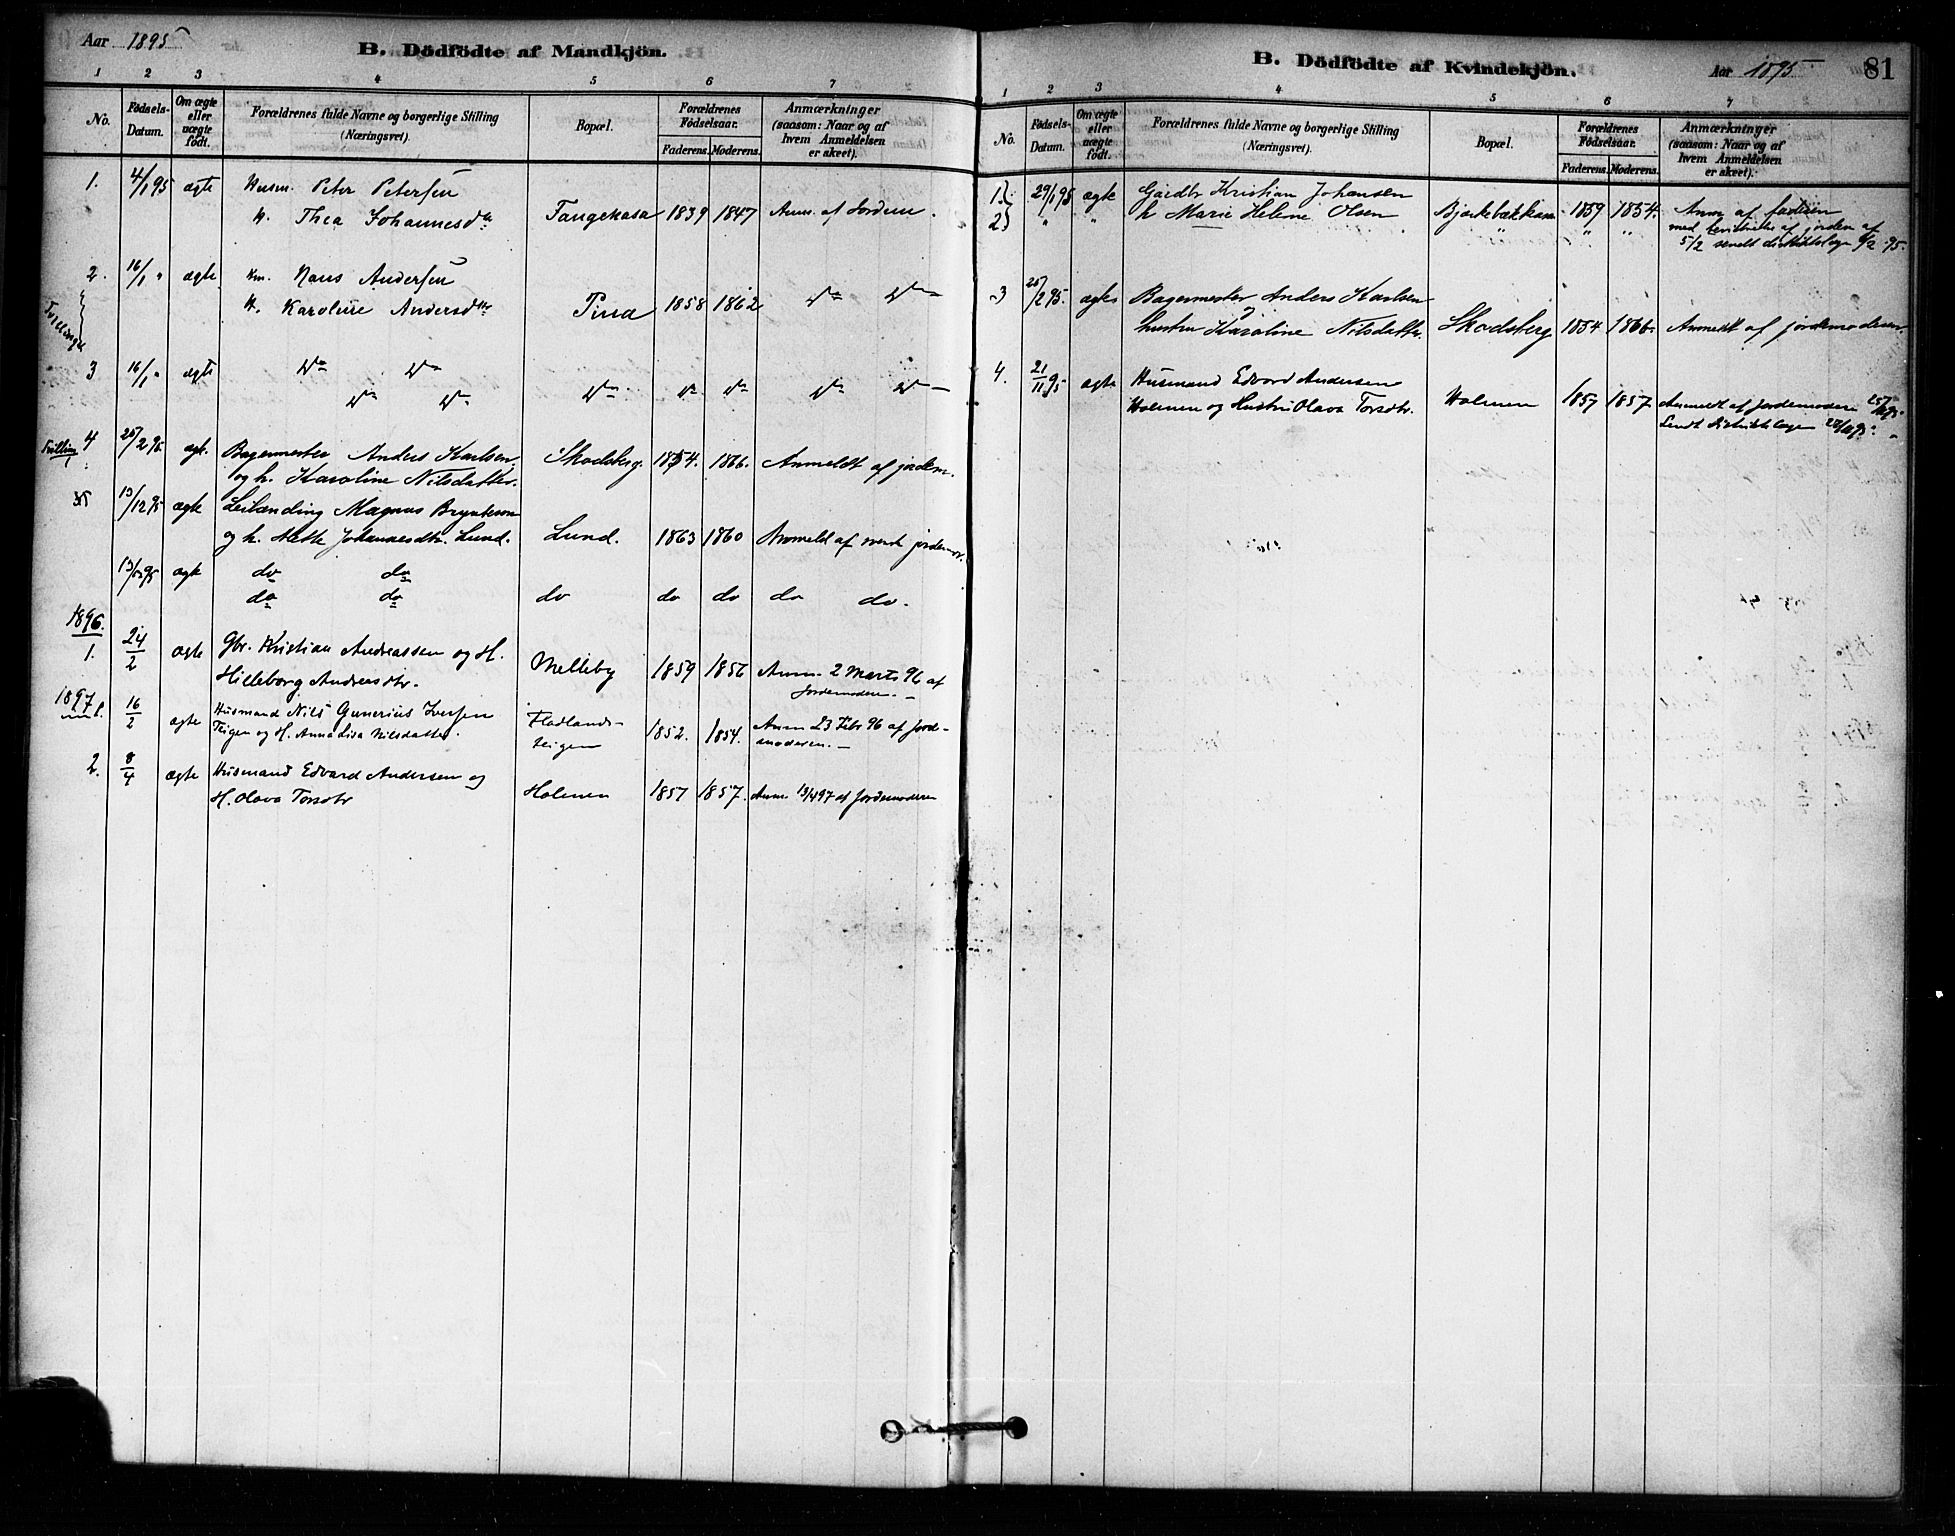 Aar 1895
B. Dödfödte af Mandkjön.
1 2 3 4 5 6 7
No.
Födsels-
Datum.
Om ægte
eller
uægte
født.
Forældrenes fulde Navne og borgerlige Stilling
(Næringsvei).
Bopæl.
Forældrenes
Födselsaar.
Faderens. Moderens.
Anmærkninger
(saasom: Naar og af
hvem Anmeldelsen
er skeet).
1. 4/1 95 ægte Husm. Peter Petersen
H. Thea Johannesdtr Tangekasa 1839 1847 Anm. af Jordem.
2. 16/1 " ægte Hans Andersen
H. Karoline Andersdtr 1858 1862 Do Do
Tvillinger
3 16/1 " ægte Do Do
Do Do Do Do Do Do Do
4 25/2 95. ægt. Bagermester Anders Karlsen
Tvilling
og h. Karoline Nilsdatter. Skodsberg. 1854. 1866. Anmeldt af jordem.
13/12 95 ægte Leilænding Magnus Bryntesen
og h. Mette Johannesdtr. Lund. Lund. 1863 1860 Anmeld af jordemor.
13/12 95 ægte do do
do do do do do do do.
1896.
1. 24/2 ægte Gbr. Kristian Andreassen og H.
Hilleborg Andreasdtr. Melleby 1859 1856 Anm. 2 Marts 96 af
Jordemoderen.
1897 1. 16/2 ægte Husmand Nils Gunerius Iversen
Teigen og H. Anna Lisa Nilsdatter. Fladlands-
teigen 1852. 1854. Anm 23 Febr 96 af Jorde-
moderen.
2. 8/4 ægte Husmand Edvard Andersen og
H. Olava Torsdtr Holmen 1857 1857. Anm. 13/4 97 af Jordemoderen
B. Dödfödte af Kvindekjön.
Aar 1895
81
1 2 3 4 5 6 7
No.
Födsels-
Datum.
Om ægte
eller
uægte
födt.
Forældrenes fulde Navne og borgerlige Stilling
(Næringsvei).
Bopæl.
Forældrenes
Födselsaar.
Faderens. Moderens.
Anmærkninger
(saasom: Naar og af
hvem Anmeldelsen
er skeet).
1. 29/1 95 ægte Gaardbr Kristian Johansen
2 " " h Marie Helene Olsen Bjørkebækkasa 1859 1854. Anm af faderen
" " " med bevidnelse af jordem af
5/2 sendt distriktslæge 6/2 95.
3 25/2 95. ægte Bagermester Anders Karlsen
og
hustru Karoline Nilsdatter. Skodsberg 1854 1866. Anmeldt af jordemoderen.
4. 21/11 95 ægte Husmand Edvard Andersen
Holmen og Hustru Olava Torsdtr. Holmen 1857 1857. Anmeldt af Jordemoderen
Sendt Distriktslægen